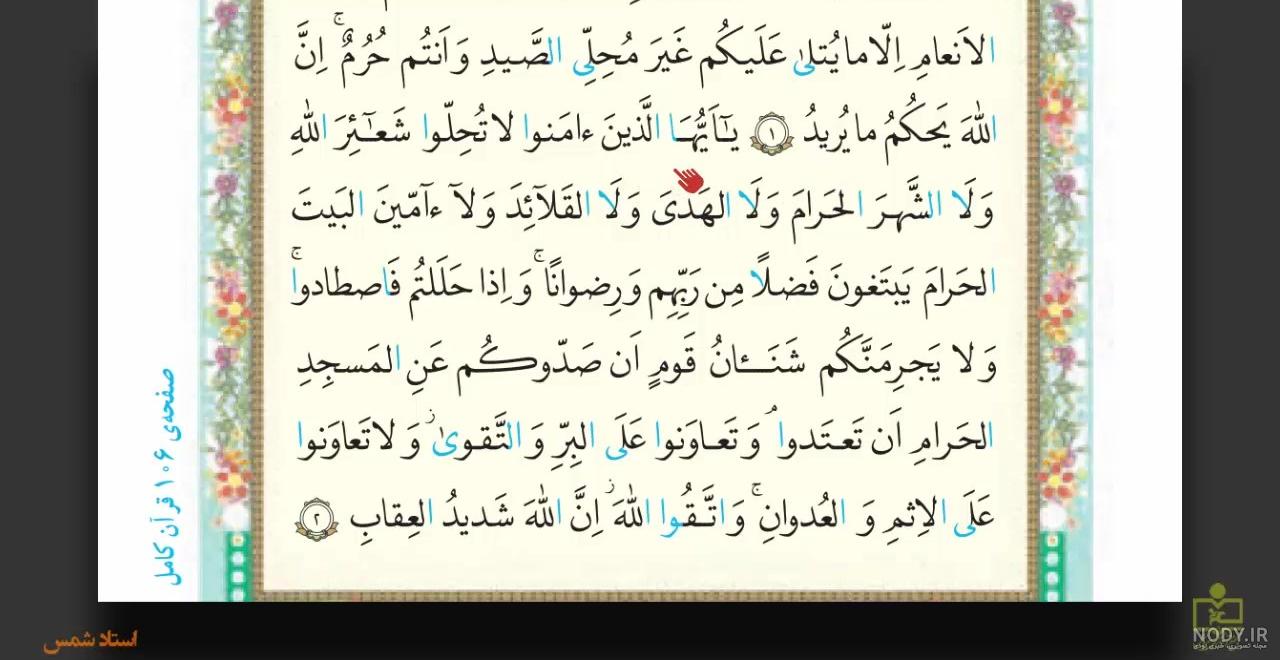 الاَنعامِ اِلّا ما يُتلىٰ عَلَيكُم غَيرَ مُحِلِّى الصَّيدِ وَ اَنتُم حُرُمٌ ۚ اِنَّ
اللهَ يَحكُمُ ما يُريدُ ﴿١﴾ يٰٓاَيُّهَا الَّذينَ ءامَنوا لا تُحِلّوا شَعـٰٓئِرَ اللهِ
وَلَا الشَّهرَ الحَرامَ وَلَا الهَدىَ وَلَا القَلآئِدَ وَلآ ءآمّينَ البَيتَ
الحَرامَ يَبتَغونَ فَضلًا مِن رَبِّهِم وَرِضوانًا ۚ وَ اِذا حَلَلتُم فَاصطادوا ۚ
وَ لا يَجرِمَنَّكُم شَنَـٔانُ قَومٍ اَن صَدّوكُم عَنِ المَسجِدِ
الحَرامِ اَن تَعتَدوا ۘ وَ تَعاوَنوا عَلَى البِرِّ وَ التَّقوىٰ ز وَ لا تَعاوَنوا
عَلَى الاِثمِ وَ العُدوانِ ۚ وَ اتَّقُوا اللهَ ز اِنَّ اللهَ شَديدُ العِقابِ ﴿٢﴾
صفحه‌ی ۱۰۶ قرآن کامل
استاد شمس
NODY.IR